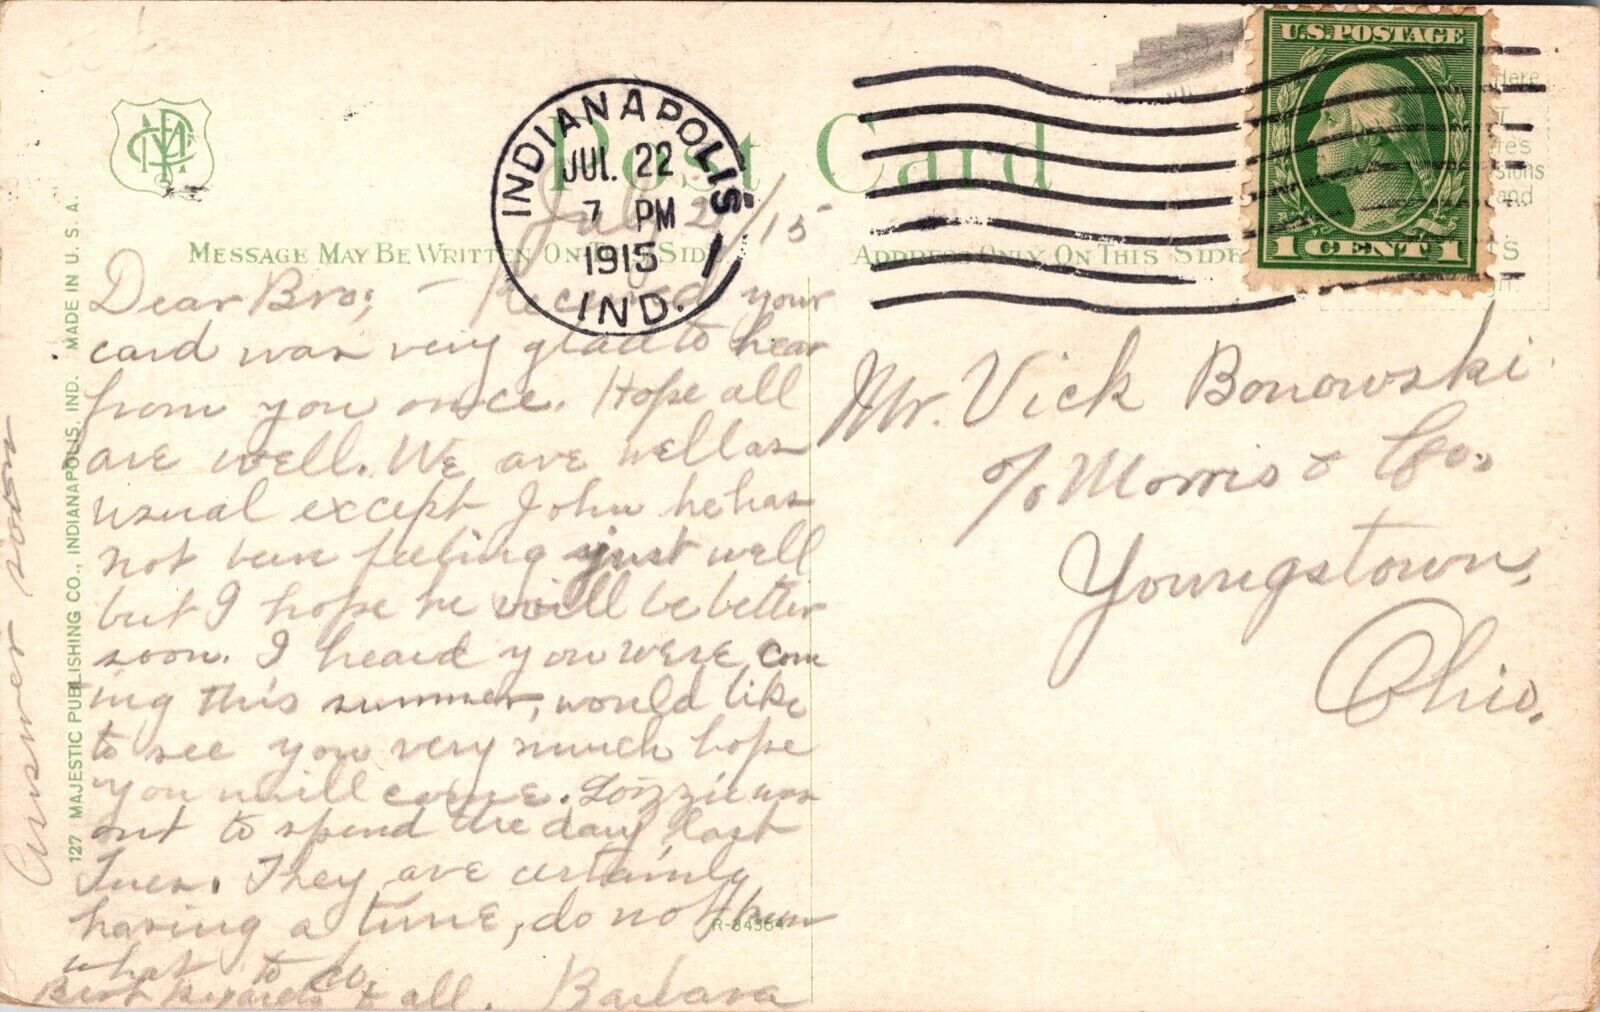 Post Card
MESSAGE MAY BE WRITTEN ON THIS SIDE
ADDRESS ONLY ON THIS SIDE
INDIANAPOLIS
JUL 22
7 PM
1915
IND.
U.S. POSTAGE
1 CENT 1
Here
and
July 21/15
Dear Bro; – Received your
card was very glad to hear
from you once. Hope all
are well. We are well as
usual except John he has
not been feeling just well
but I hope he will be better
soon. I heard you were com
ing this summer, would like
to see you very much hope
you will come. Lizzie was
out to spend the day last
Tues. They are certainly
having a time, do not know
what to do.
Best Regards to all. Barbara
Answer soon
Mr. Vick Bonowski
c/o Morris & Co.
Youngstown,
Ohio.
127 MAJESTIC PUBLISHING CO., INDIANAPOLIS, IND. MADE IN U. S. A.
R-84364